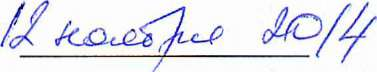 12 ноября 2014